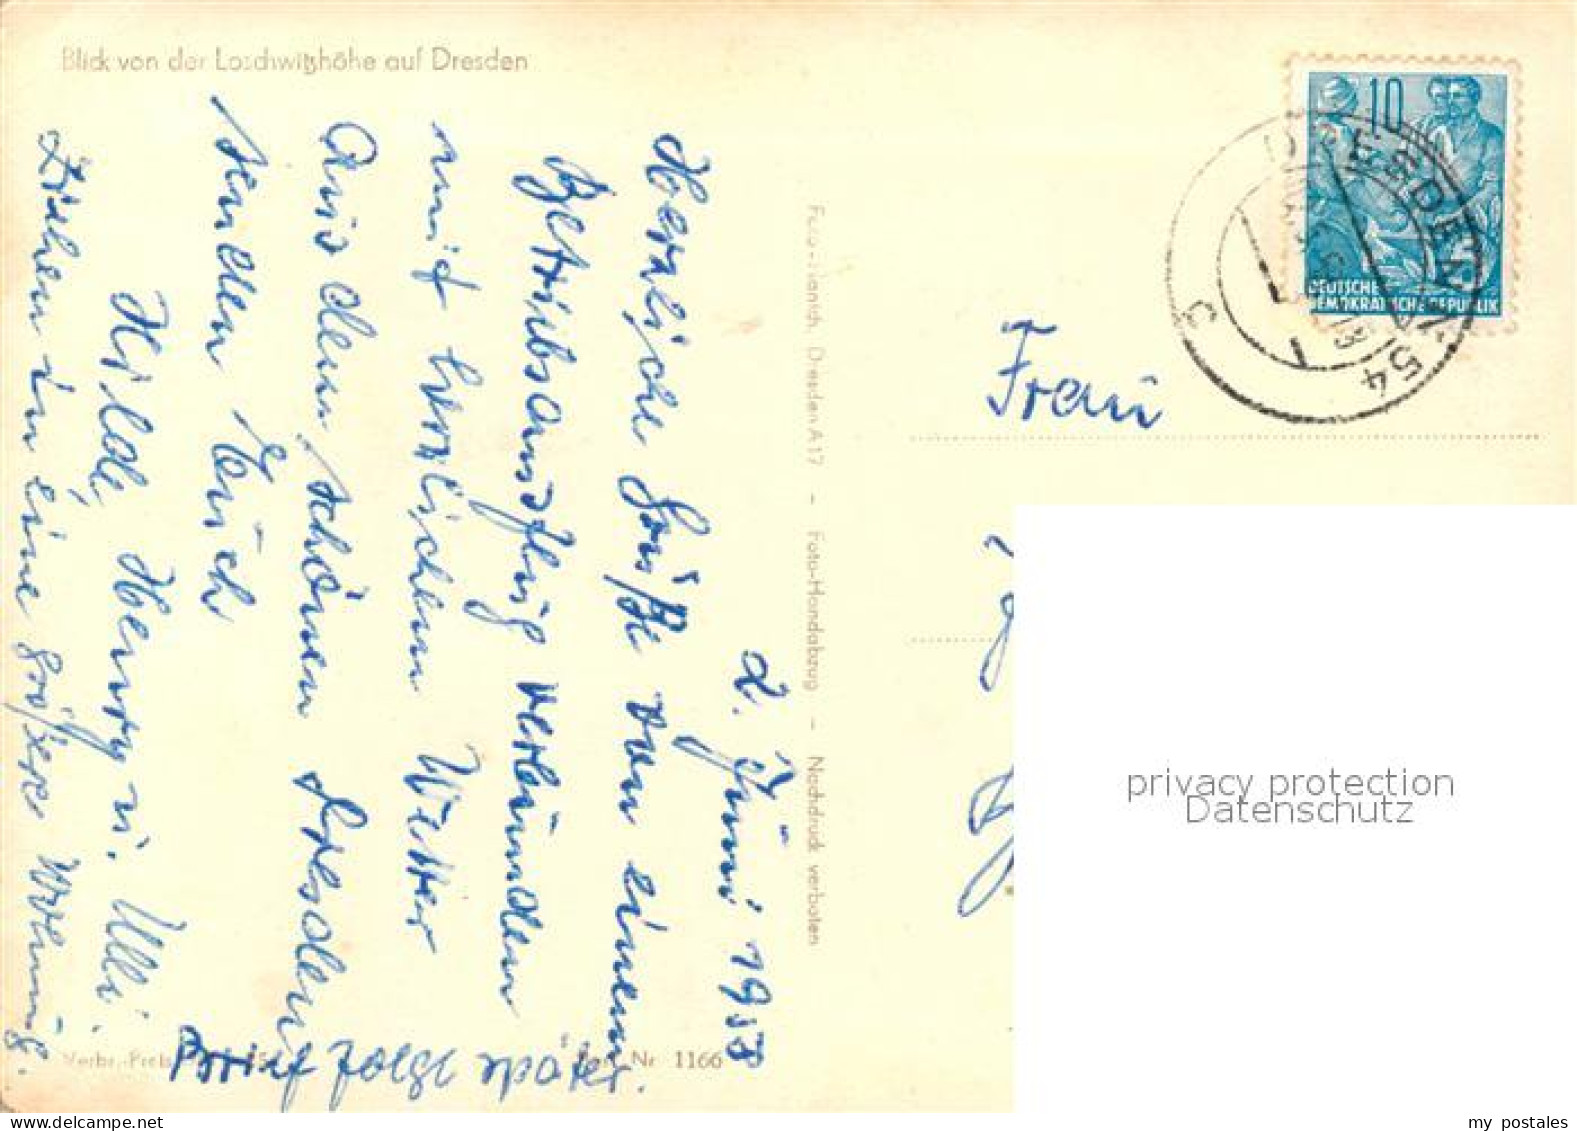 Blick von der Loschwitzhöhe auf Dresden
2. Juni 1958
Herzliche Grüße von einem
Betriebsausflug verbunden
mit herrlichem Wetter
Aus dem schönen Dresden
senden Euch
Hilde, Henry u. Ulli.
Ziehen in eine größere Wohnung.
Brief folgt später.
Verbr.-Preis
Nr. 1166
Foto-Hanich, Dresden A 17 – Foto-Handabzug – Nachdruck verboten
10
DEUTSCHE
DEMOKRATISCHE REPUBLIK
DRESDEN A 54
c
Frau
privacy protection
Datenschutz
my postales